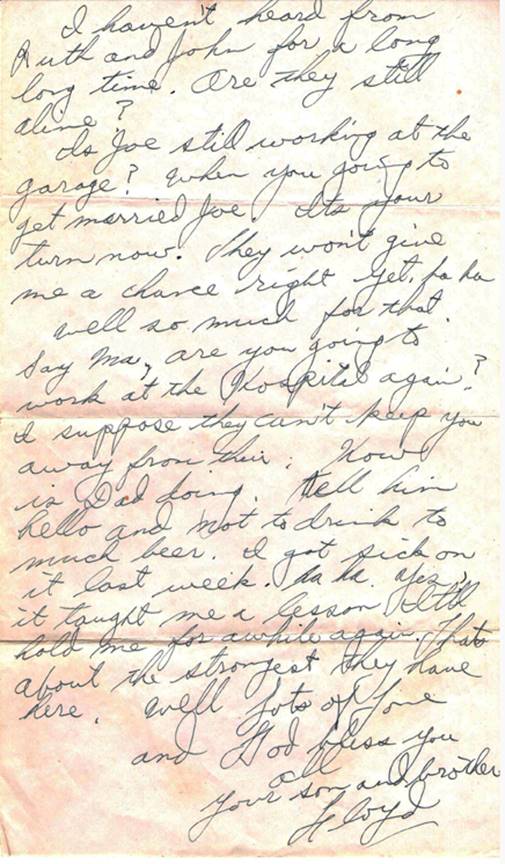 I haven't heard from
Ruth and John for a long
long time. Are they still
alive?
Is Joe still working at the
garage? When you going to
get married Joe. Its your
turn now. They won't give
me a chance right yet, ha ha
Well so much for that.
Say Ma, are you going to
work at the Hospital again?
I suppose they can't keep you
away from their. How
is Dad doing. Tell him
hello and not to drink to
much beer. I got sick on
it last week. Ha ha. Yes,
it taught me a lesson Itll
hold me for awhile again. Thats
about the strongest they have
here. Well lots of love
and God bless you
all
Your son and brother
Floyd